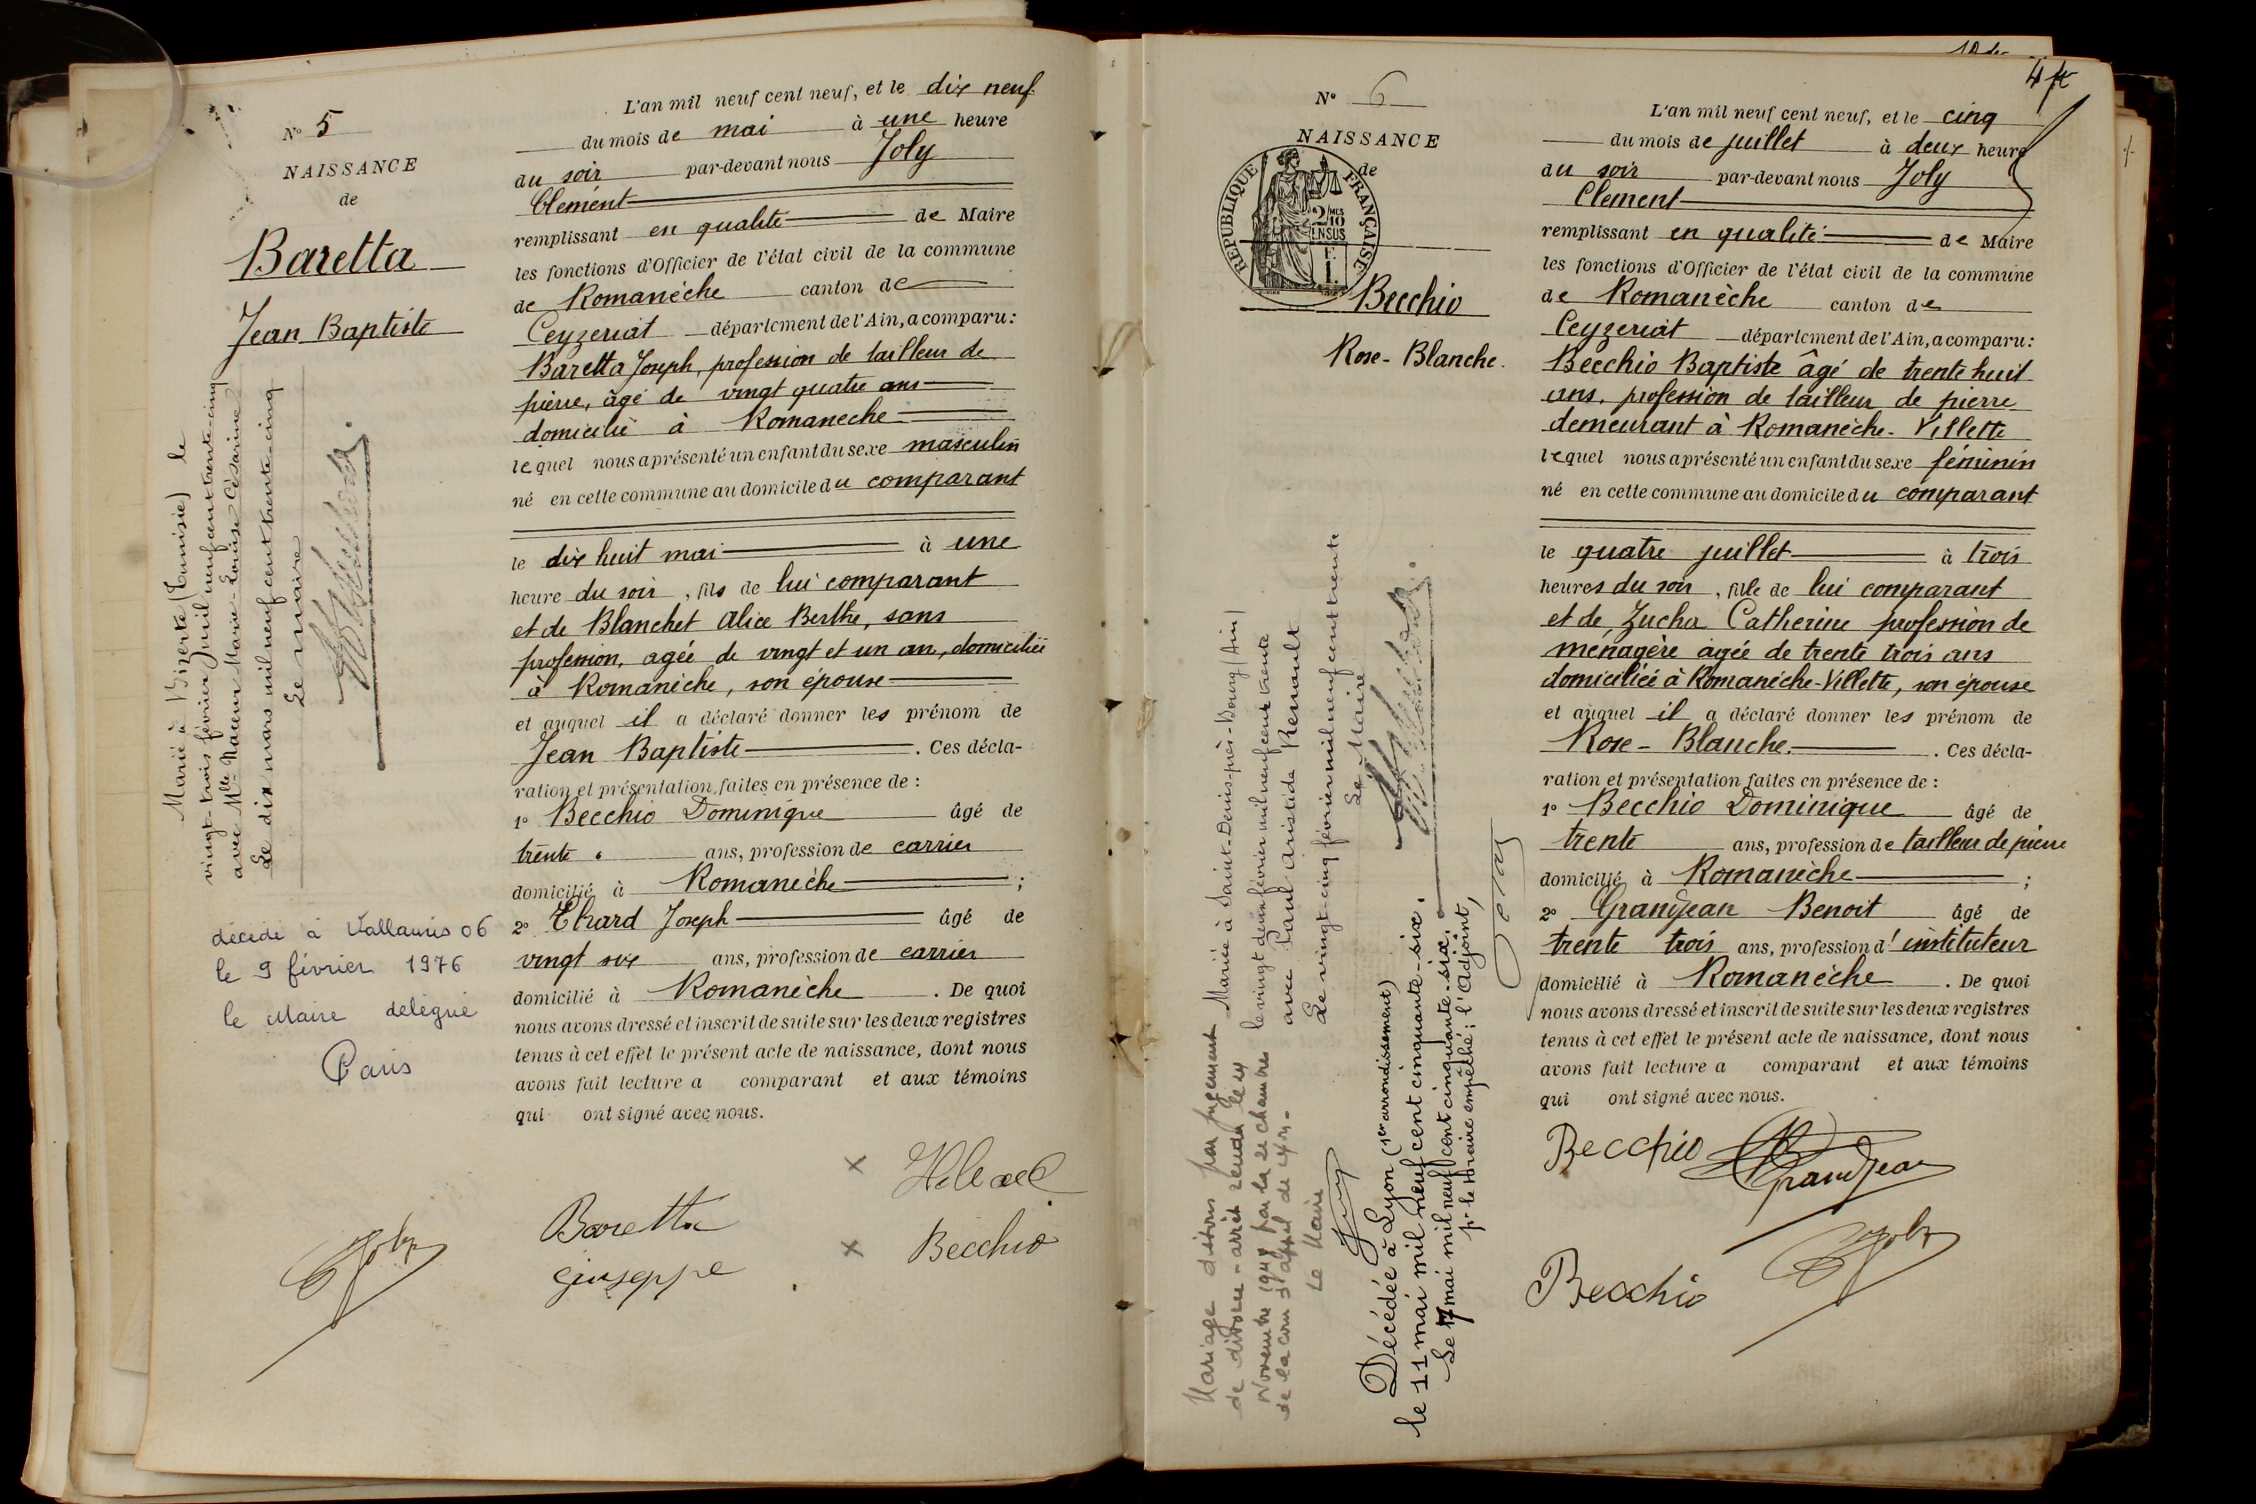 N° 5
NAISSANCE
de
Baretta
Jean Baptiste
Marié à Bizerte (Tunisie) le
vingt-trois février mil neuf cent trente-cinq
avec Mlle Marie-Louise Césarine
Le dix mars mil neuf cent trente-cinq
Le maire
décédé à Vallauris 06
le 9 février 1976
le Maire délégué
Paris
L'an mil neuf cent neuf, et le dix neuf
du mois de mai à une heure
du soir par-devant nous Joly
Clément
remplissant en qualité de Maire
les fonctions d'Officier de l'état civil de la commune
de Romanèche canton de
Ceyzeriat département de l'Ain, a comparu :
Baretta Joseph, profession de tailleur de
pierre, âgé de vingt quatre ans
domicilié à Romanèche
lequel nous a présenté un enfant du sexe masculin
né en cette commune au domicile du comparant
le dix huit mai à une
heure du soir, fils de lui comparant
et de Blanchet Alice Berthe, sans
profession, agée de vingt et un an, domiciliée
à Romanèche, son épouse
et auquel il a déclaré donner les prénom de
Jean Baptiste. Ces décla-
ration et présentation faites en présence de :
1° Becchio Dominique âgé de
trente ans, profession de carrier
domicilié à Romanèche ;
2° Joseph âgé de
vingt six ans, profession de carrier
domicilié à Romanèche. De quoi
nous avons dressé et inscrit de suite sur les deux registres
tenus à cet effet le présent acte de naissance, dont nous
avons fait lecture a comparant et aux témoins
qui ont signé avec nous.
Baretta
Giuseppe
x
x Becchio
Joly
4
N° 6
NAISSANCE
de
RÉPUBLIQUE FRANÇAISE
2/10 MES
EN SUS
F.
1.
Becchio
Rose-Blanche.
Mariée à Saint-Denis-près-Bourg (Ain)
le vingt deux février mil neuf cent trente
avec Paul Aristide Renault
Le vingt-cinq février mil neuf cent trente
Le Maire
Mariage dissous par jugement
de divorce - arrêt rendu le 24
Novembre par la 2e chambre
de la cour d'appel de
Le Maire
Décédée à Lyon (1er arrondissement)
le 11 mai mil neuf cent cinquante-six.
Le 17 mai mil neuf cent cinquante-six.
pr le Maire empêché : l'Adjoint,
L'an mil neuf cent neuf, et le cinq
du mois de juillet à deux heure
du soir par-devant nous Joly
Clement
remplissant en qualité de Maire
les fonctions d'Officier de l'état civil de la commune
de Romanèche canton de
Ceyzeriat département de l'Ain, a comparu :
Becchio Baptiste âgé de trente huit
ans, profession de tailleur de pierre
demeurant à Romanèche-Villette
lequel nous a présenté un enfant du sexe féminin
né en cette commune au domicile du comparant
le quatre juillet à trois
heures du soir, fille de lui comparant
et de Zucha Catherine profession de
ménagère agée de trente trois ans
domiciliée à Romanèche-Villette, son épouse
et auquel il a déclaré donner les prénom de
Rose-Blanche. Ces décla-
ration et présentation faites en présence de :
1° Becchio Dominique âgé de
trente ans, profession de tailleur de pierre
domicilié à Romanèche ;
2° Grandjean Benoit âgé de
trente trois ans, profession d'instituteur
domicilié à Romanèche. De quoi
nous avons dressé et inscrit de suite sur les deux registres
tenus à cet effet le présent acte de naissance, dont nous
avons fait lecture a comparant et aux témoins
qui ont signé avec nous.
Becchio Grandjean
Becchio Joly